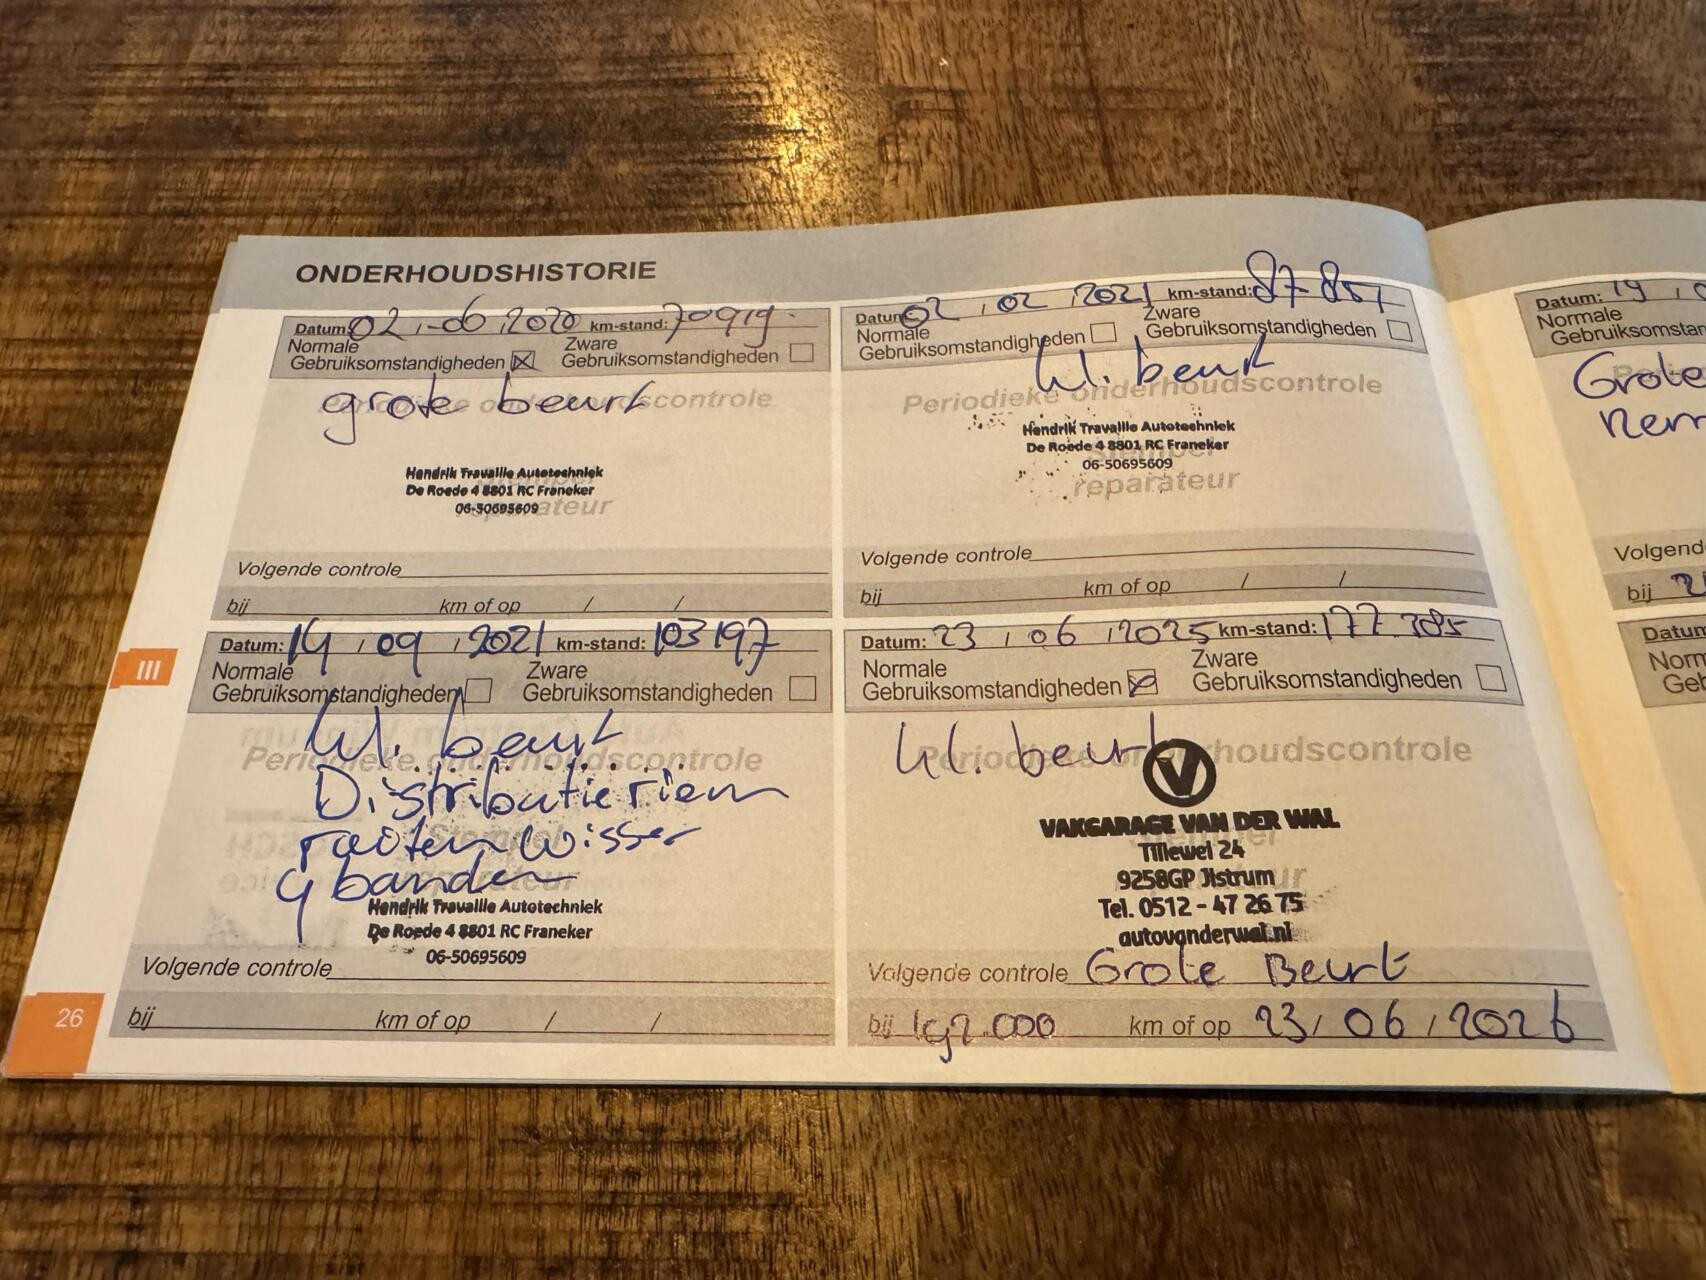 ONDERHOUDSHISTORIE
Datum: 02 , 06 , 2020 km-stand: 70919.
Normale Gebruiksomstandigheden Zware Gebruiksomstandigheden
grote beurt
Periodieke onderhoudscontrole
Hendrik Travaille Autotechniek
De Roede 4 8801 RC Franeker
06-50695609
Stempel
reparateur
Volgende controle
bij km of op / /
Datum: 02 , 02 , 2021 km-stand: 87 857
Normale Gebruiksomstandigheden Zware Gebruiksomstandigheden
kl. beurt
Periodieke onderhoudscontrole
Hendrik Travaille Autotechniek
De Roede 4 8801 RC Franeker
06-50695609
Stempel
reparateur
Volgende controle
bij km of op / /
Datum: 14 , 09 , 2021 km-stand: 103197
Normale Gebruiksomstandigheden Zware Gebruiksomstandigheden
kl. beurt
Periodieke onderhoudscontrole
Distributieriem
Stempel
ruitenwisser
4 banden
reparateur
Hendrik Travaille Autotechniek
De Roede 4 8801 RC Franeker
06-50695609
Volgende controle
bij km of op / /
Datum: 23 , 06 , 2025 km-stand: 177.385
Normale Gebruiksomstandigheden Zware Gebruiksomstandigheden
kl. beurt
Periodieke onderhoudscontrole
V
VAKGARAGE VAN DER WAL
Stempel
Tillewei 24
9258GP Jistrum
Tel. 0512 - 47 26 75
autovanderwal.nl
Volgende controle Grote Beurt
bij 192.000 km of op 23 / 06 / 2026
III
26
Datum: 19
Normale
Grote
Volgend
bij 2
Datum